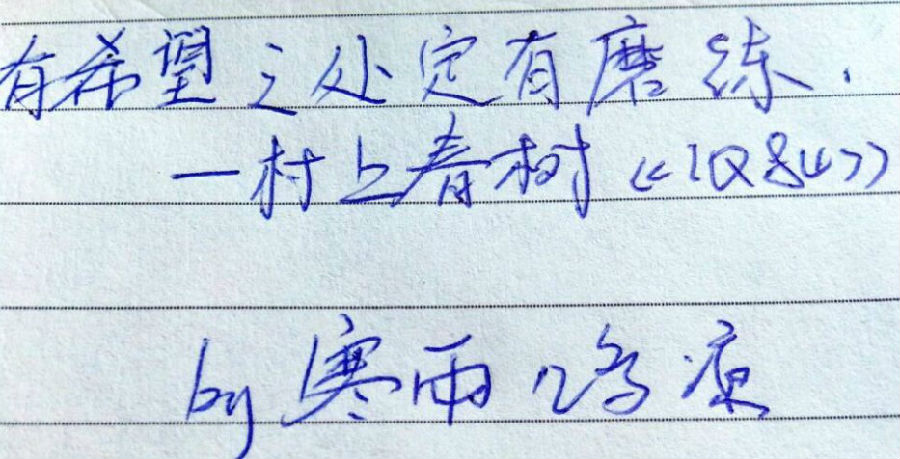 有希望之处定有磨练.
—村上春树《1Q84》
by 寒雨